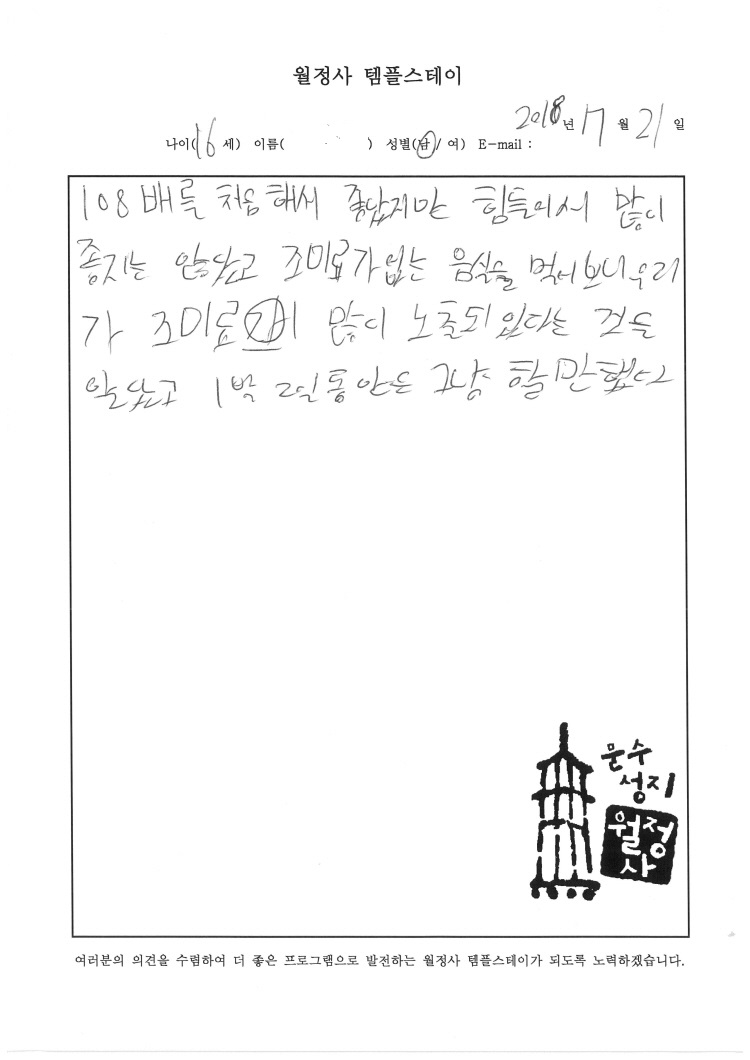 월정사 템플스테이
2018년 7월 21일
나이(16 세) 이름( ) 성별(남/ 여) E-mail :
108배를 처음해서 좋았지만 힘들어서 많이
좋지는 않았고 조미료가 없는 음식을 먹어보니 우리
가 조미료에 많이 노출되 있다는 것을
알았고 1박 2일 동안은 그냥 할만했다
문수
성지
월정
사
여러분의 의견을 수렴하여 더 좋은 프로그램으로 발전하는 월정사 템플스테이가 되도록 노력하겠습니다.